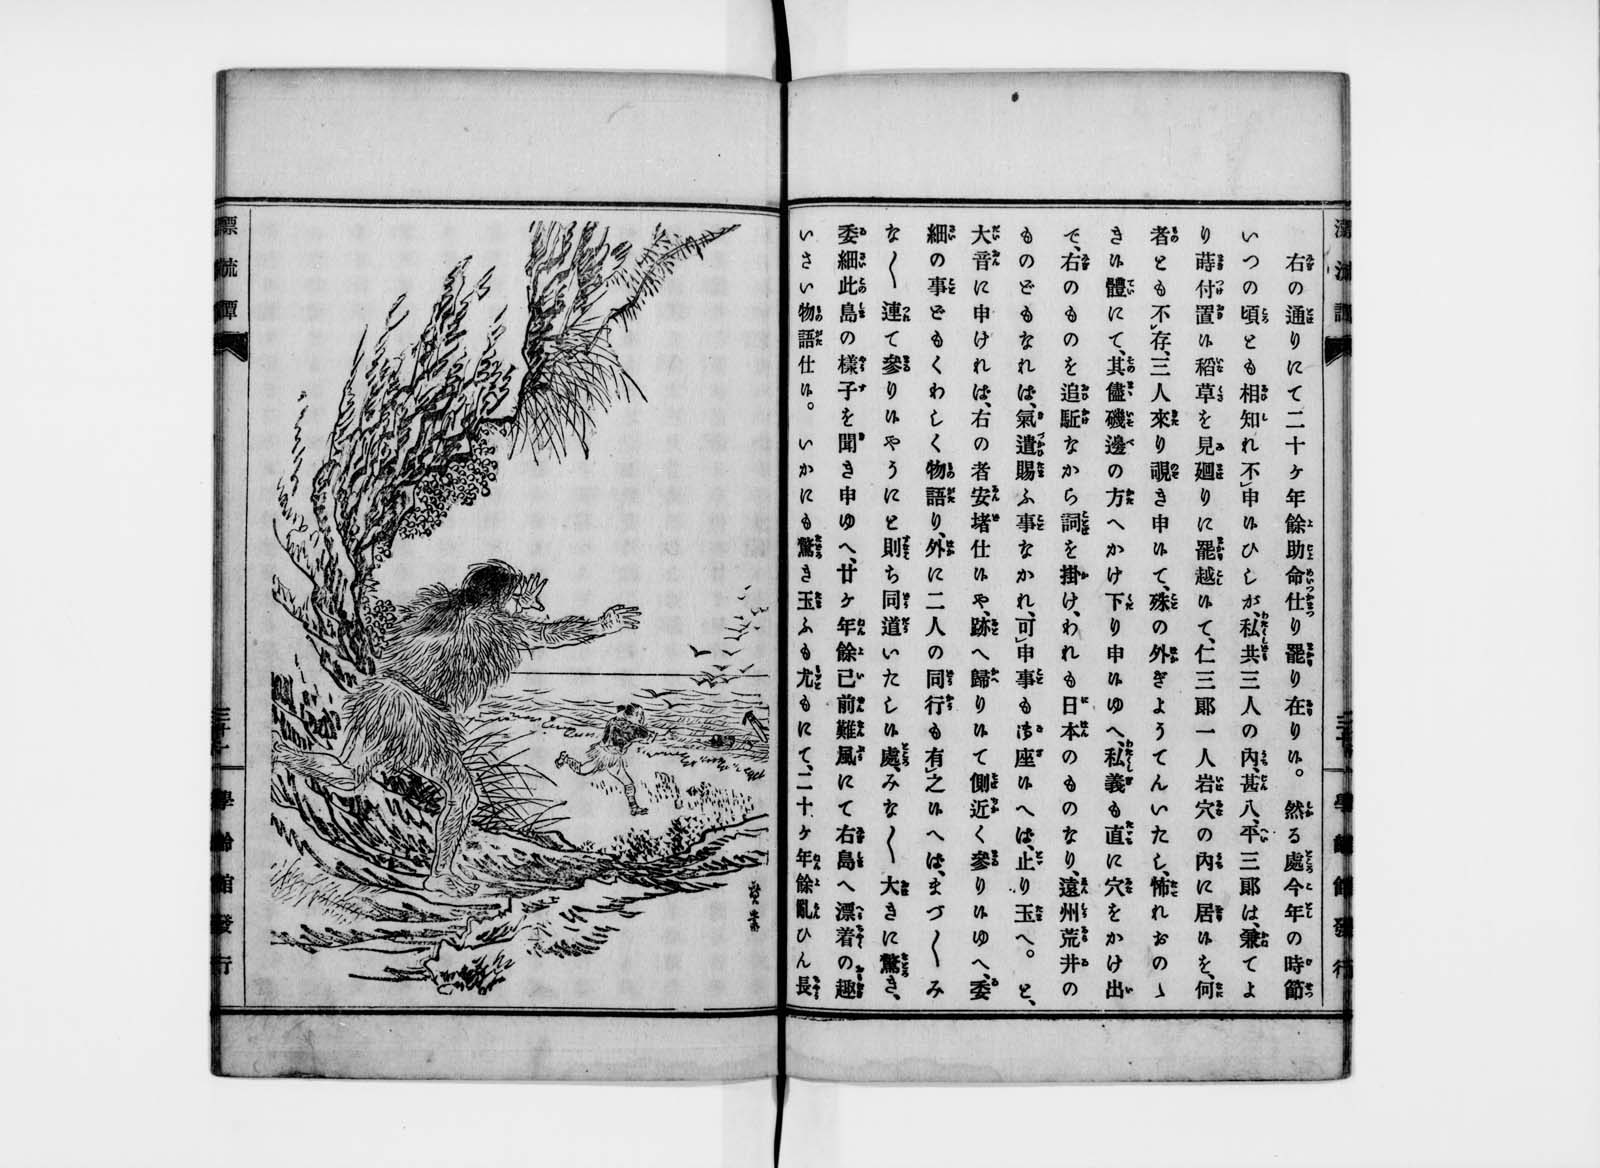 漂流譚
學齡館發行
右の通りにて二十ヶ年餘助命仕り罷り在りい。然る處今年の時節
いつの頃とも相知れ不申いひしが、私共三人の内、甚八、平三郎は、兼てよ
り蒔付置い稻草を見廻りに罷越いて、仁三郎一人岩穴の内に居いを、何
者とも不存、三人來り覗き申いて、殊の外ぎようてんいたし、怖れおのゝ
きい體にて、其儘磯邊の方へかけ下り申いゆへ、私義も直に穴をかけ出
で、右のものを追駈なから詞を掛け、われも日本のものなり、遠州荒井の
ものどもなれは、氣遣賜ふ事なかれ、可申事も御座いへは、止り玉へ。と、
大音に申けれは、右の者安堵仕いや、跡へ歸りいて側近く參りいゆへ、委
細の事どもくわしく物語り、外に二人の同行も有之いへは、まづ〳〵み
な〳〵連て參りいやうにと則ち同道いたしい處、みな〳〵大きに驚き、
委細此島の樣子を聞き申ゆへ、廿ヶ年餘已前難風にて右島へ漂着の趣
いさい物語仕い。いかにも驚き玉ふも尤もにて、二十ヶ年餘亂ひん長
漂流譚
三十一
學齡館發行